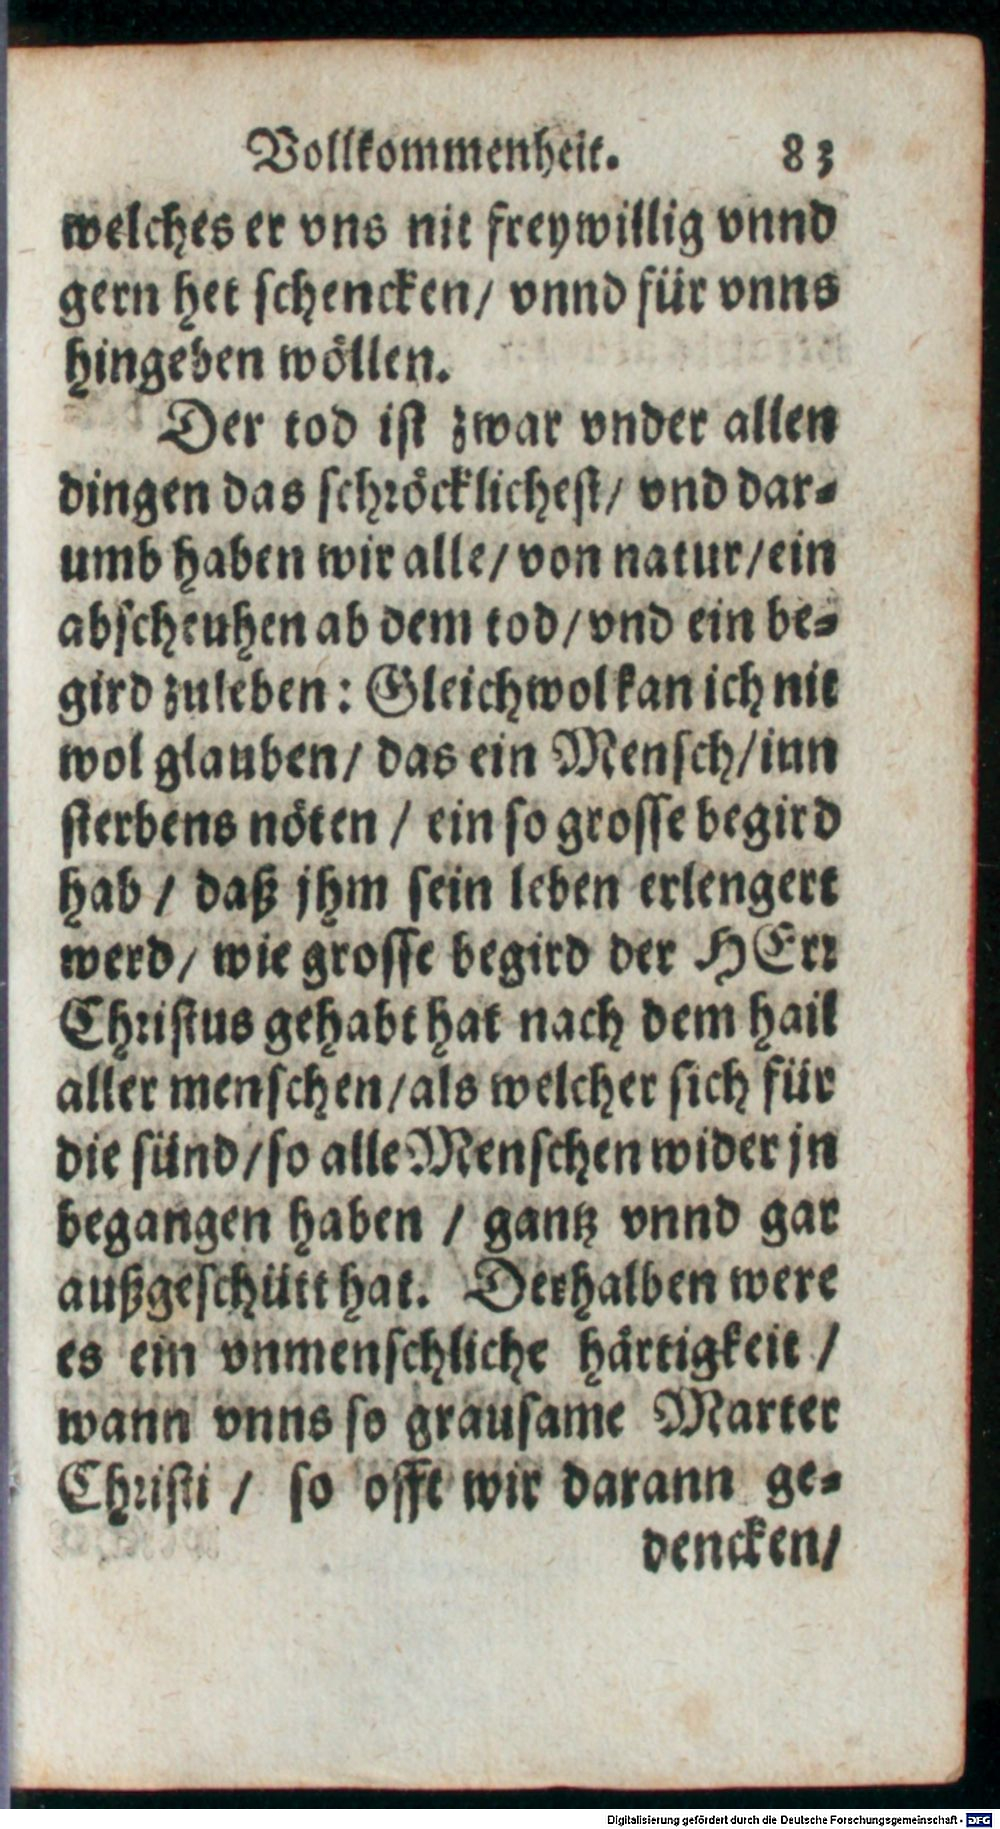 Vollkommenheit. 83
welches er vns nit freywillig vnnd
gern het schencken/ vnnd für vnns
hingeben wöllen.
Der tod ist zwar vnder allen
dingen das schröcklichest/ vnd dar-
umb haben wir alle/ von natur/ ein
abscheuhen ab dem tod/ vnd ein be-
gird zuleben: Gleichwol kan ich nit
wol glauben/ das ein Mensch/ inn
sterbens nöten / ein so grosse begird
hab / daß jhm sein leben erlengert
werd/ wie grosse begird der HErr
Christus gehabt hat nach dem hail
aller menschen/ als welcher sich für
die sünd/ so alle Menschen wider jn
begangen haben / gantz vnnd gar
außgeschütt hat. Derhalben were
es ein vnmenschliche härtigkeit /
wann vnns so grausame Marter
Christi / so offt wir darann ge-
dencken/
Digitalisierung gefördert durch die Deutsche Forschungsgemeinschaft - DFG